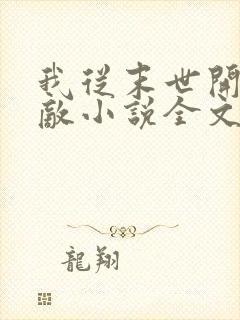 我從末世開
敵小說全文
龍翔